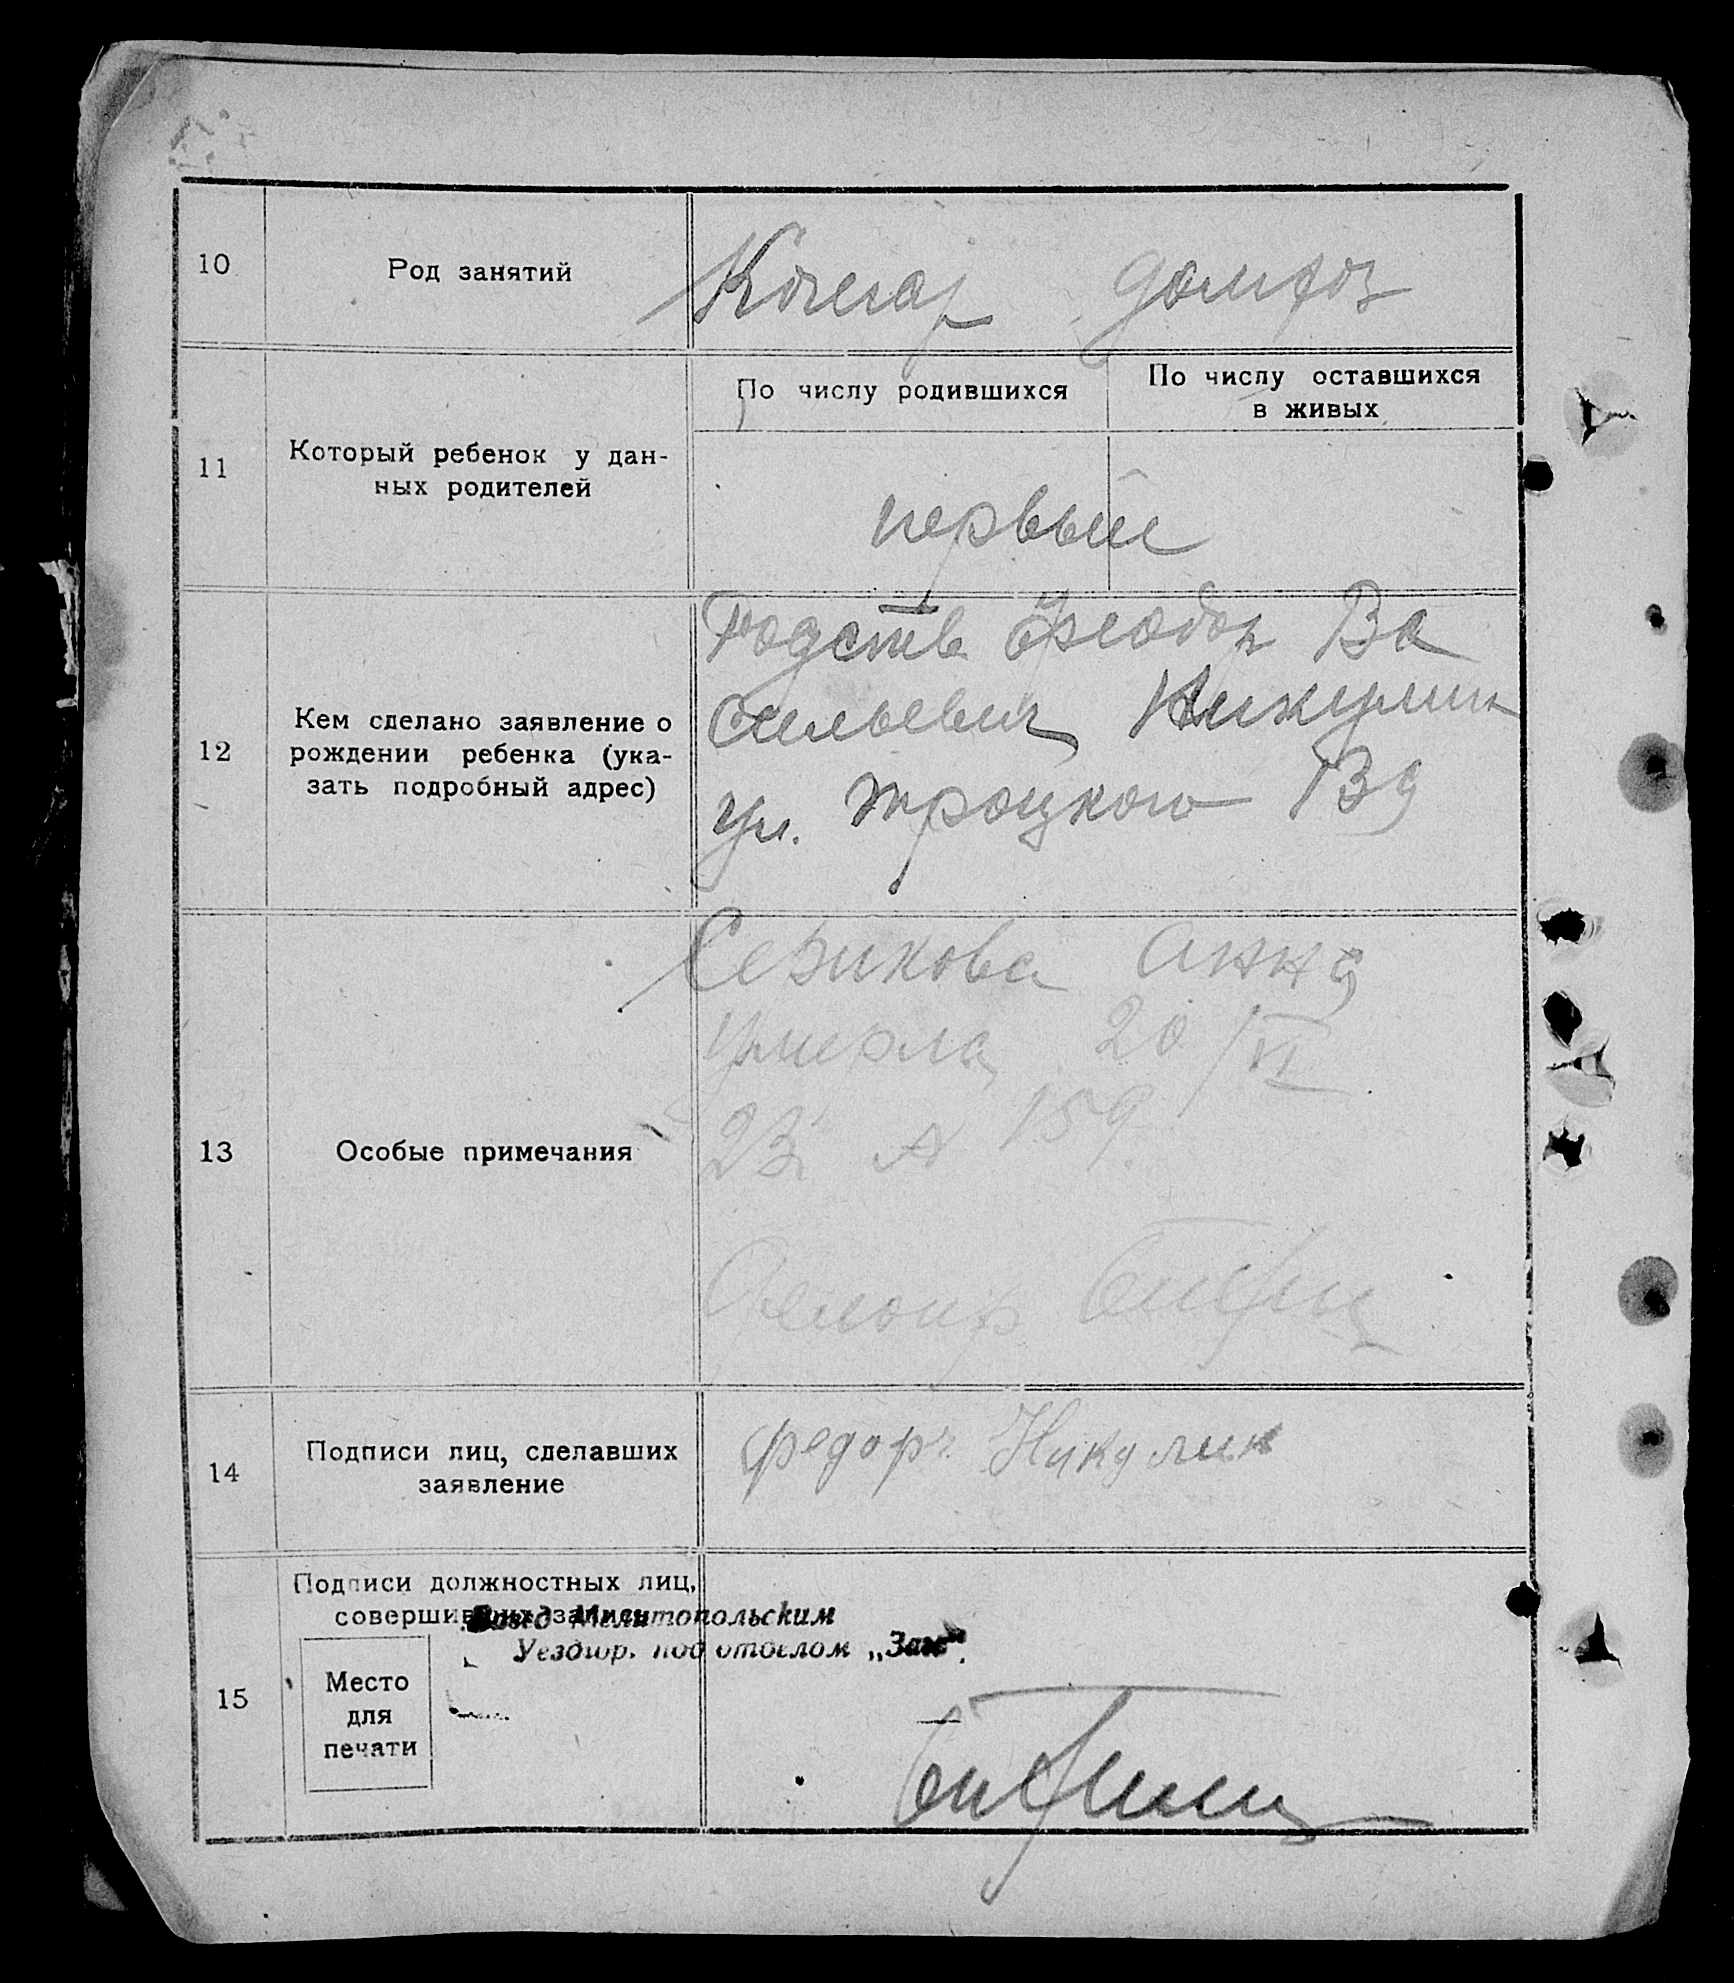 10
Род занятий
Кочегар домхоз
11
Который ребенок у дан-
ных родителей
По числу родившихся
По числу оставшихся
в живых
первый
12
Кем сделано заявление о
рождении ребенка (ука-
зать подробный адрес)
Родств Феодор Ва
сильевич Никулин
ул. Троцкого
13
Особые примечания
Севикова Анна
умерла 20/VI
23 А 159
14
Подписи лиц, сделавших
заявление
Федор Никулин
15
Подписи должностных лиц,
совершивших запись
Завед Мелитопольским
Уездгор. подотделом „Загс“.
Место
для
печати